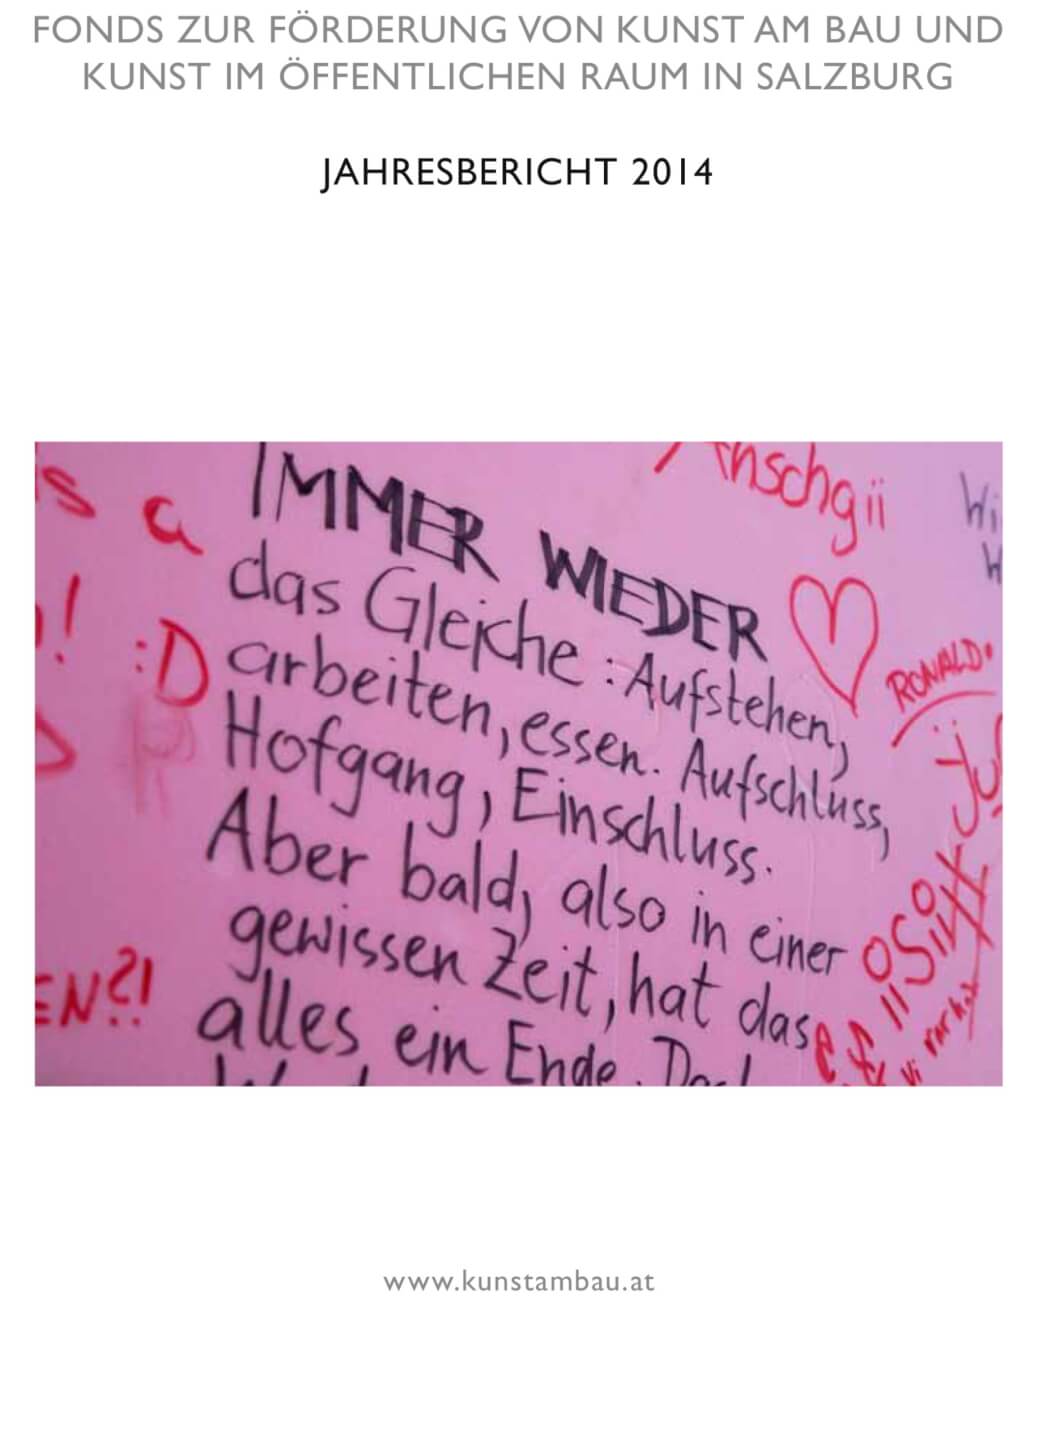 FONDS ZUR FÖRDERUNG VON KUNST AM BAU UND
KUNST IM ÖFFENTLICHEN RAUM IN SALZBURG
JAHRESBERICHT 2014
IMMER WIEDER
das Gleiche: Aufstehen,
arbeiten, essen. Aufschluss,
Hofgang, Einschluss.
Aber bald, also in einer
gewissen Zeit, hat das
alles ein Ende.
s a
!
:D
EN?!
Wi
RONALD.
www.kunstambau.at